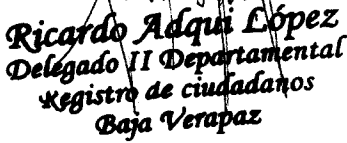 Ricardo Adqui López
Delegado II Departamental
Registro de ciudadanos
Baja Verapaz